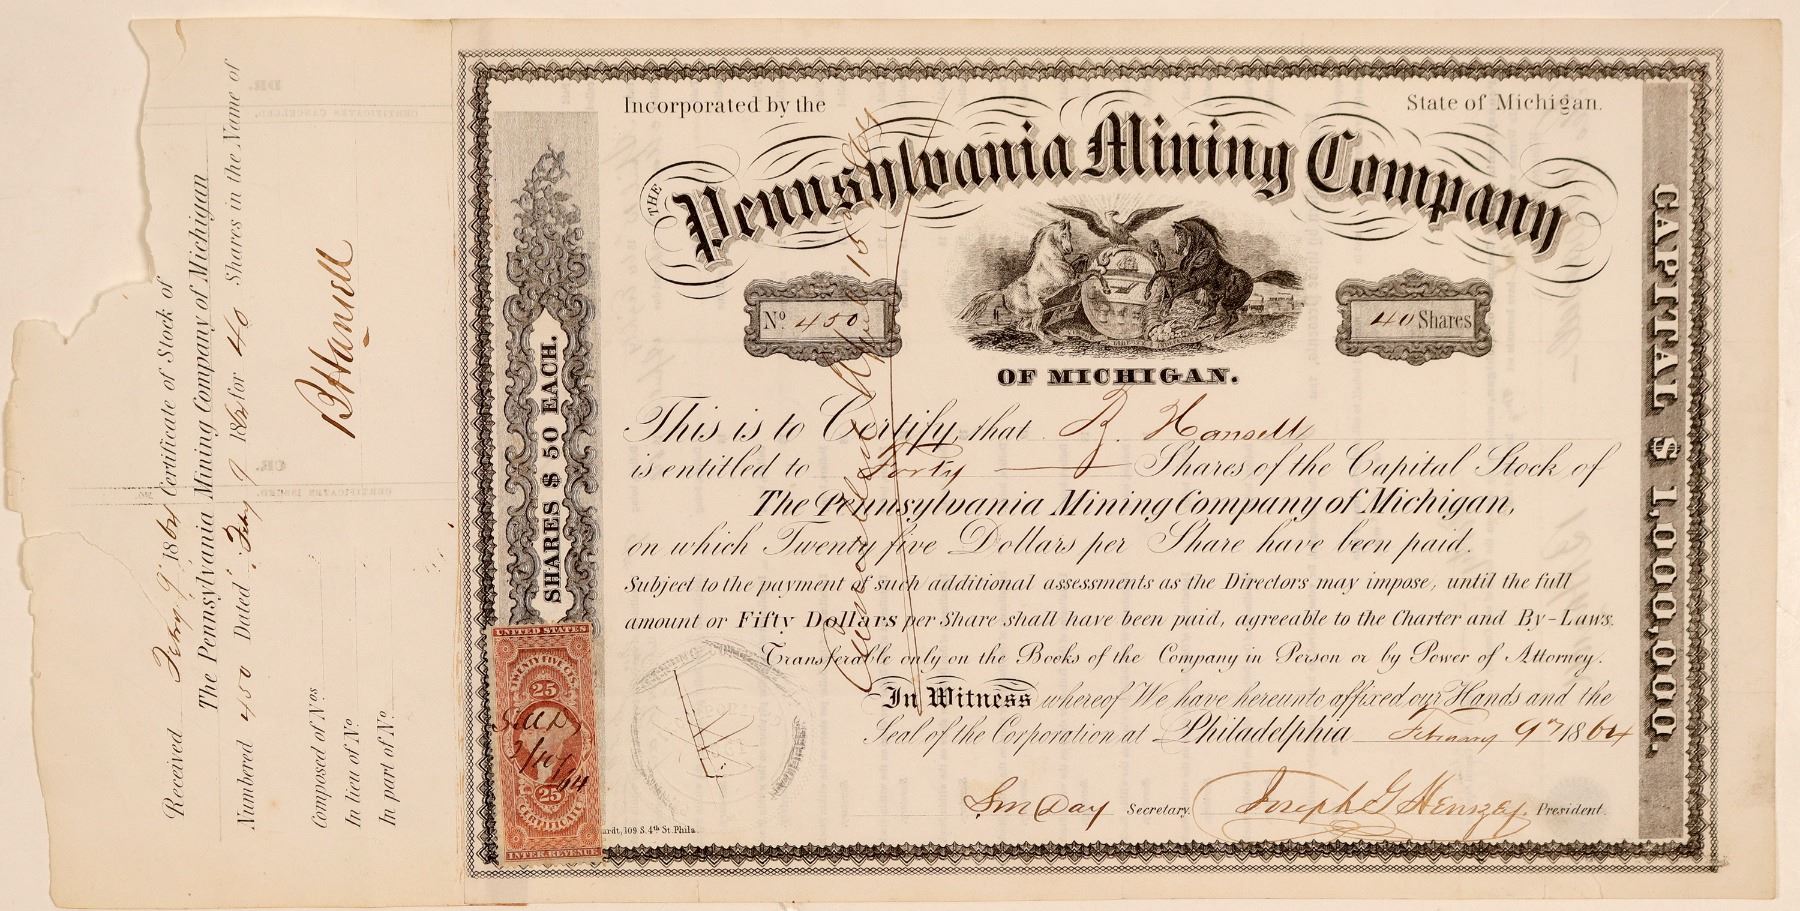 Received Febry 9 1864 Certificate of Stock of
The Pennsylvania Mining Company of Michigan
Numbered 450 Dated Feby 9 1864 for 40 Shares in the Name of
B Hansell
Composed of Nos
In lieu of No
In part of No
DR.
CERTIFICATES CANCELLED.
CR.
CERTIFICATES ISSUED.
No.
SHARES $ 50 EACH.
UNITED STATES
TWENTY FIVE CTS.
25
25
CERTIFICATE
INTER. REVENUE
2/10/64
Incorporated by the State of Michigan.
THE Pennsylvania Mining Company
No 450
40 Shares
OF MICHIGAN.
This is to Certify, that B. Hansell
is entitled to Forty Shares of the Capital Stock of
The Pennsylvania Mining Company of Michigan,
on which Twenty five Dollars per Share have been paid.
Subject to the payment of such additional assessments as the Directors may impose, until the full
amount or Fifty Dollars per Share shall have been paid, agreeable to the Charter and By-Laws.
Transferable only on the Books of the Company in Person or by Power of Attorney.
In Witness whereof We have hereunto affixed our Hands and the
Seal of the Corporation at Philadelphia February 9th 1864
Sm Day Secretary. Joseph G Henszey President.
ardt, 109 S. 4th St. Phila.
Cancelled April 15
CAPITAL $ 1,000,000.